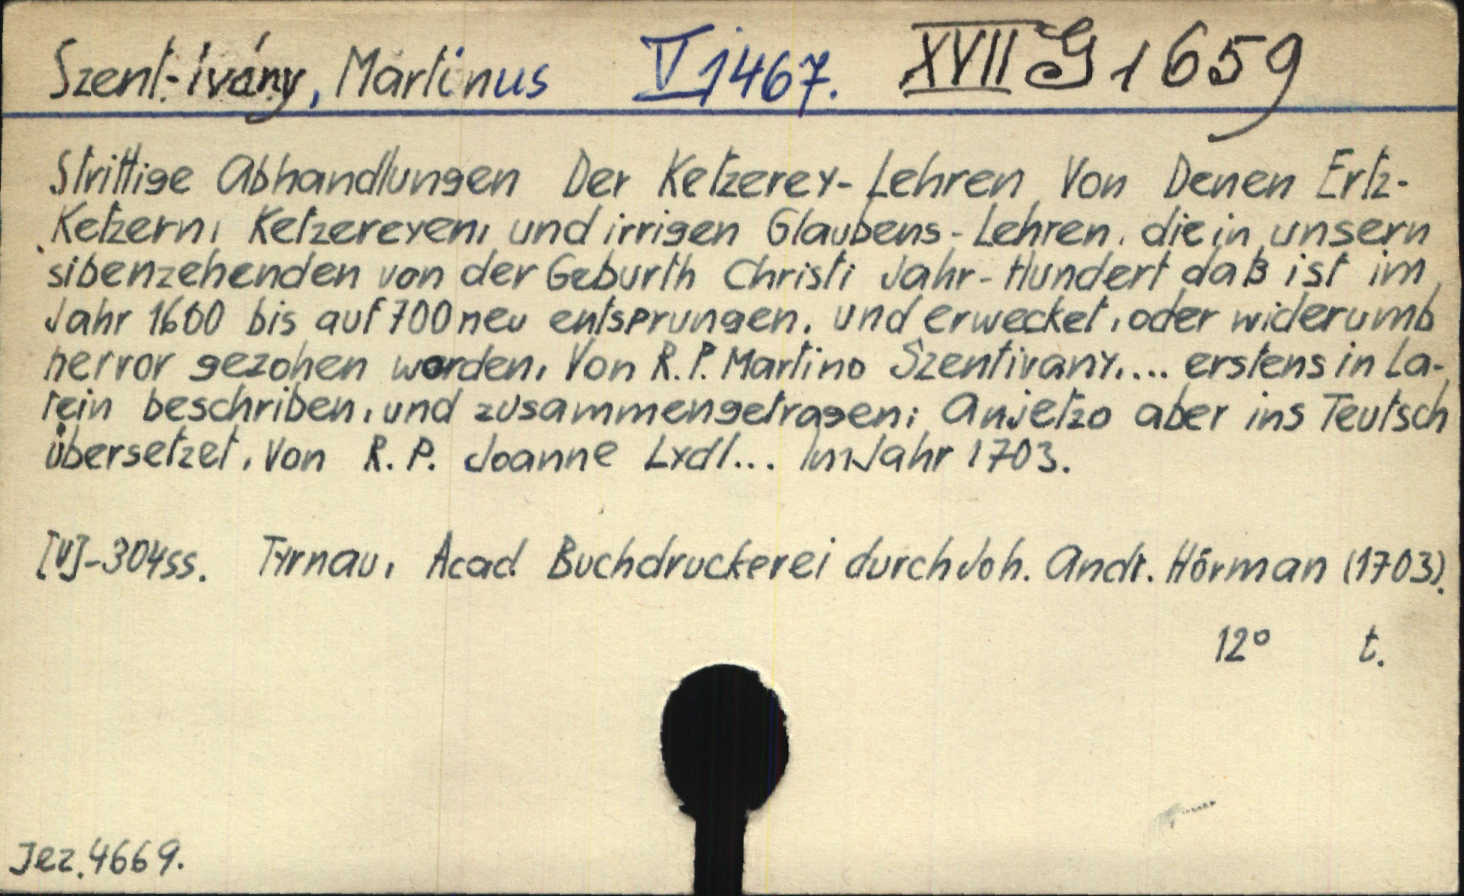 Szent-Ivány, Martinus V 1467. XVII G 1659
Strittige Abhandlungen Der Ketzerey-Lehren, Von Denen Ertz-
Ketzern, Ketzereyen, und irrigen Glaubens-Lehren, die in unsern
sibenzehenden von der Geburth Christi Jahr-Hundert daß ist im
Jahr 1600 bis auf 700 neu entsprungen, und erwecket, oder widerumb
hervor gezohen worden, Von R. P. Martino Szentivany,... erstens in La-
tein beschriben, und zusammengetragen; Anjetzo aber ins Teutsch
übersetzet, Von R. P. Joanne Lydl... Im Jahr 1703.
[V]-304 ss. Tyrnau, Acad. Buchdruckerei durch Joh. Andr. Hörman (1703).
12° t.
Jez. 4669.